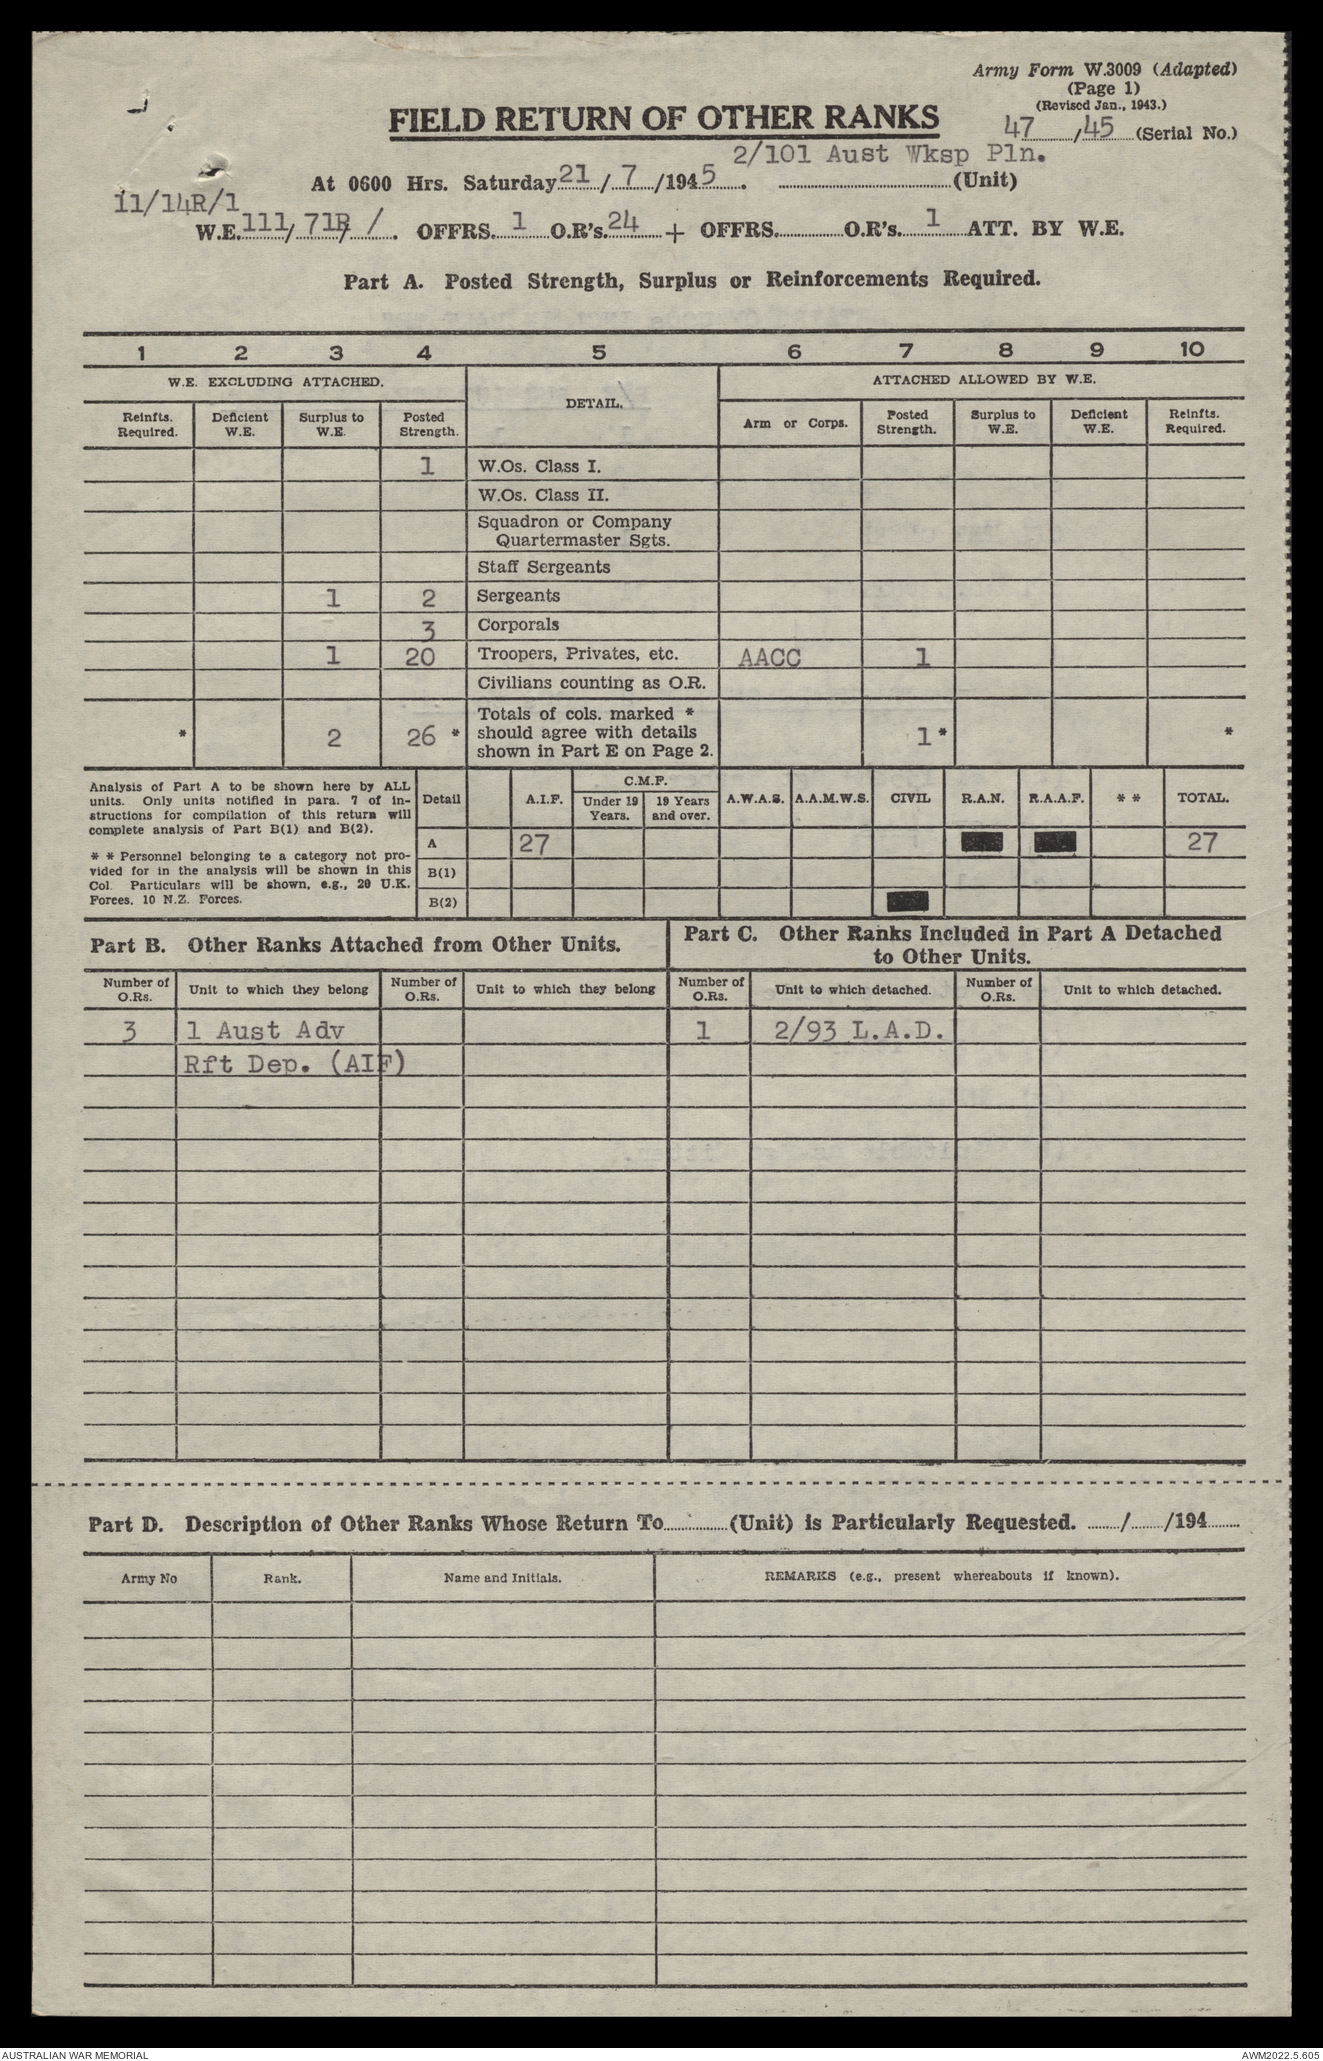 Army Form W.3009 (Adapted)
(Page 1)
(Revised Jan., 1943.)
FIELD RETURN OF OTHER RANKS
47/45 (Serial No.)
2/101 Aust Wksp Pln.
At 0600 Hrs. Saturday 21/7/1945. (Unit)
11/14R/1
W.E. 111/71R/. OFFRS. 1 O.R's. 24 + OFFRS. O.R's. 1 ATT. BY W.E.
Part A. Posted Strength, Surplus or Reinforcements Required.
1 2 3 4 5 6 7 8 9 10
W.E. EXCLUDING ATTACHED. DETAIL. ATTACHED ALLOWED BY W.E.
Reinfts. Required. Deficient W.E. Surplus to W.E. Posted Strength. Arm or Corps. Posted Strength. Surplus to W.E. Deficient W.E. Reinfts. Required.
1 W.Os. Class I.
W.Os. Class II.
Squadron or Company
Quartermaster Sgts.
Staff Sergeants
1 2 Sergeants
3 Corporals
1 20 Troopers, Privates, etc. AACC 1
Civilians counting as O.R.
Totals of cols. marked *
* 2 26 * should agree with details 1* *
shown in Part E on Page 2.
Analysis of Part A to be shown here by ALL
units. Only units notified in para. 7 of in-
structions for compilation of this return will
complete analysis of Part B(1) and B(2).
* * Personnel belonging to a category not pro-
vided for in the analysis will be shown in this
Col. Particulars will be shown, e.g., 20 U.K.
Forces, 10 N.Z. Forces.
Detail A.I.F. C.M.F. Under 19 Years. 19 Years and over. A.W.A.S. A.A.M.W.S. CIVIL R.A.N. R.A.A.F. * * TOTAL.
A 27 27
B(1)
B(2)
Part B. Other Ranks Attached from Other Units.
Part C. Other Ranks Included in Part A Detached
to Other Units.
Number of O.Rs. Unit to which they belong Number of O.Rs. Unit to which they belong Number of O.Rs. Unit to which detached. Number of O.Rs. Unit to which detached.
3 1 Aust Adv 1 2/93 L.A.D.
Rft Dep. (AIF)
Part D. Description of Other Ranks Whose Return To (Unit) is Particularly Requested. / /194
Army No Rank. Name and Initials. REMARKS (e.g., present whereabouts if known).
AUSTRALIAN WAR MEMORIAL AWM2022.5.605